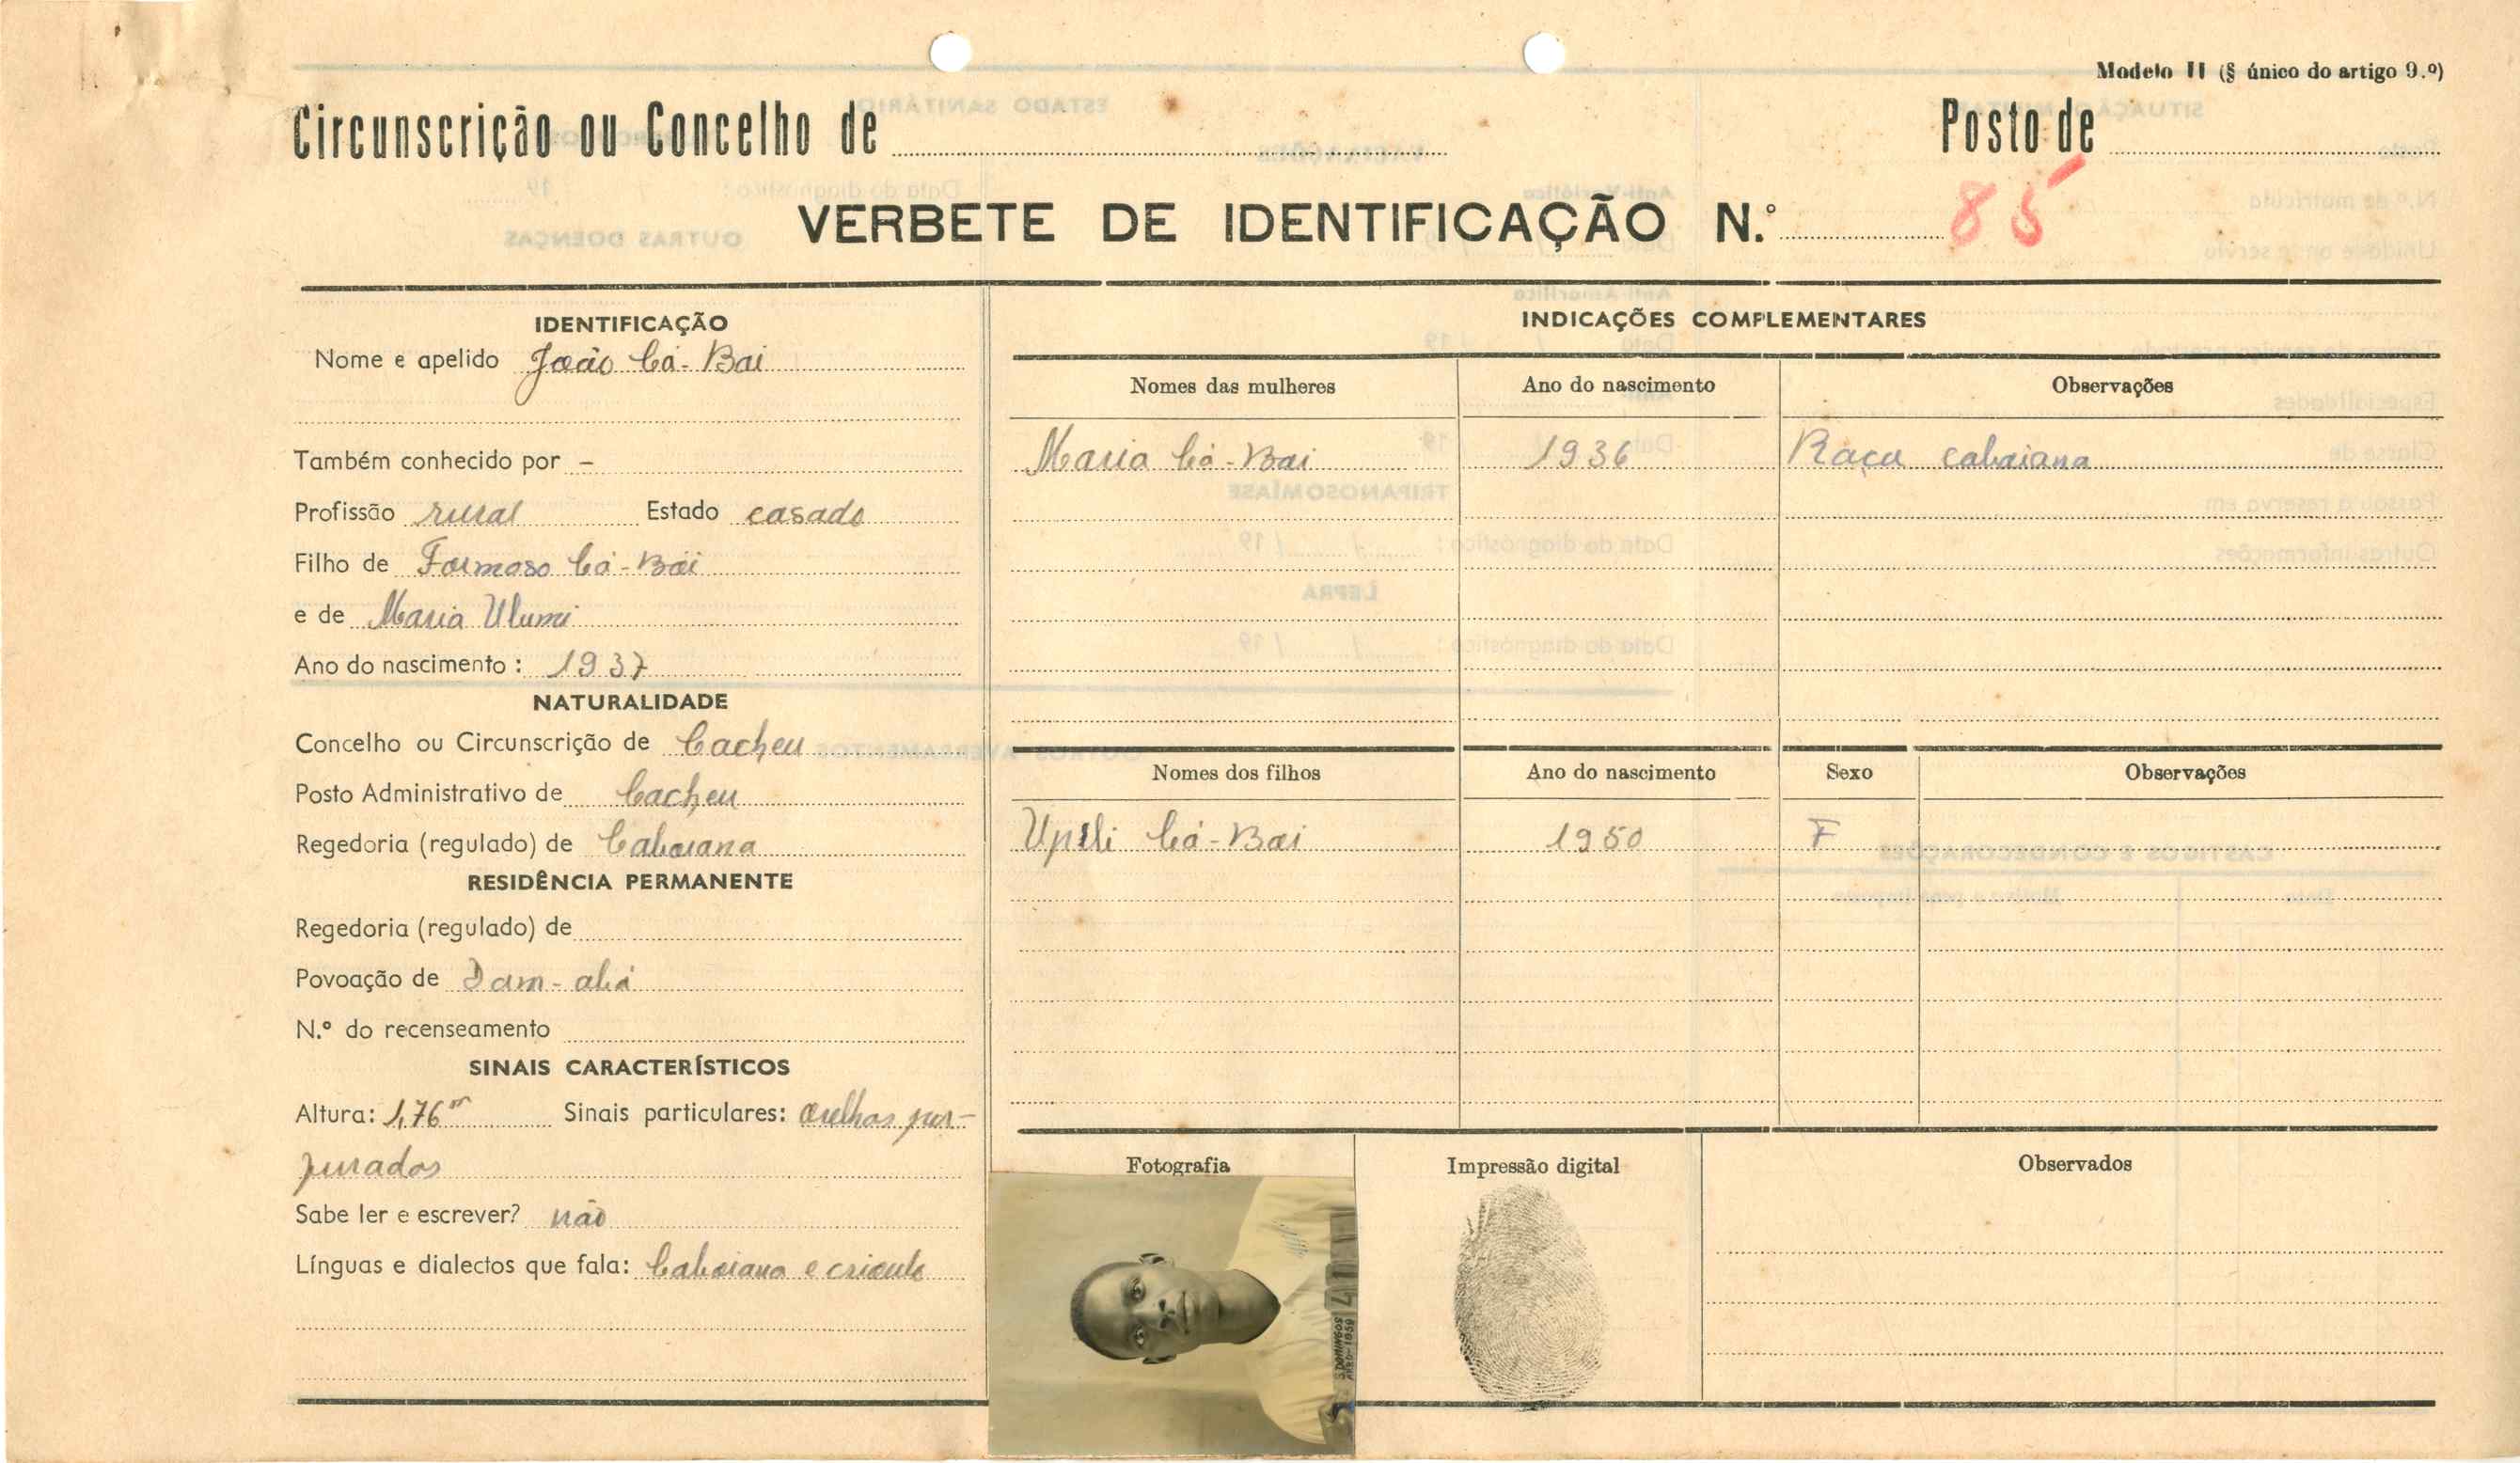 Modelo II (§ único do artigo 9.º)
Circunscrição ou Concelho de
Posto de
VERBETE DE IDENTIFICAÇÃO N.º 85
IDENTIFICAÇÃO
Nome e apelido João Cá-Bai
Também conhecido por -
Profissão rural Estado casado
Filho de Formoso Cá-Bai
e de Maria Ulumi
Ano do nascimento: 1937
NATURALIDADE
Concelho ou Circunscrição de Cacheu
Posto Administrativo de Cacheu
Regedoria (regulado) de Caboiana
RESIDÊNCIA PERMANENTE
Regedoria (regulado) de
Povoação de
N.º do recenseamento
SINAIS CARACTERÍSTICOS
Altura: 1,76m Sinais particulares: orelhas per-
furados
Sabe ler e escrever? não
Línguas e dialectos que fala: Caboiana e crioulo
INDICAÇÕES COMPLEMENTARES
Nomes das mulheres Ano do nascimento Observações
Maria Cá-Bai 1936 Raça caboiana
Nomes dos filhos Ano do nascimento Sexo Observações
Cá-Bai 1950 F
Fotografia Impressão digital Observados
S. DOMINGOS